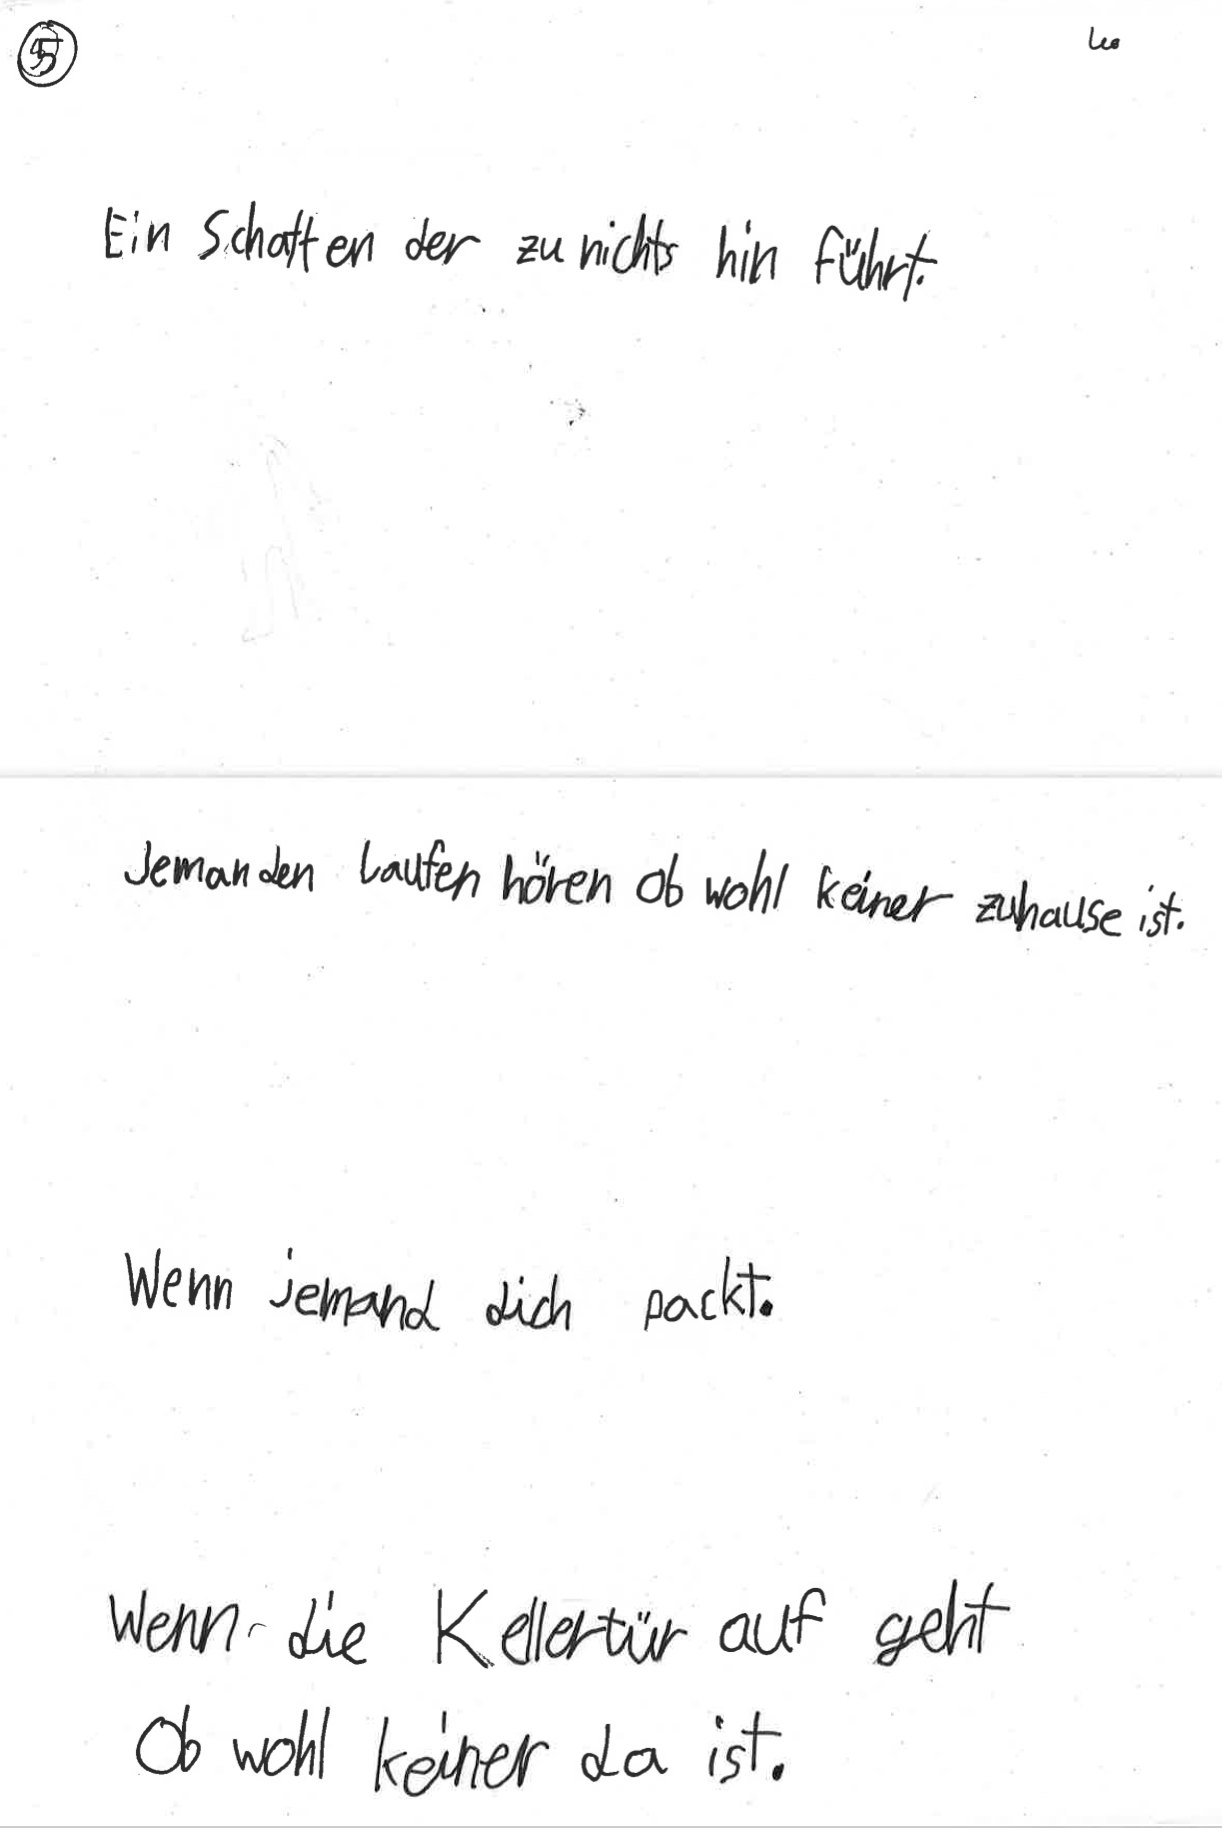 5
Leo
Ein Schatten der zu nichts hin führt.
Jemanden Laufen hören Ob wohl keiner zuhause ist.
Wenn jemand dich packt.
Wenn die Kellertür auf geht
Ob wohl keiner da ist.